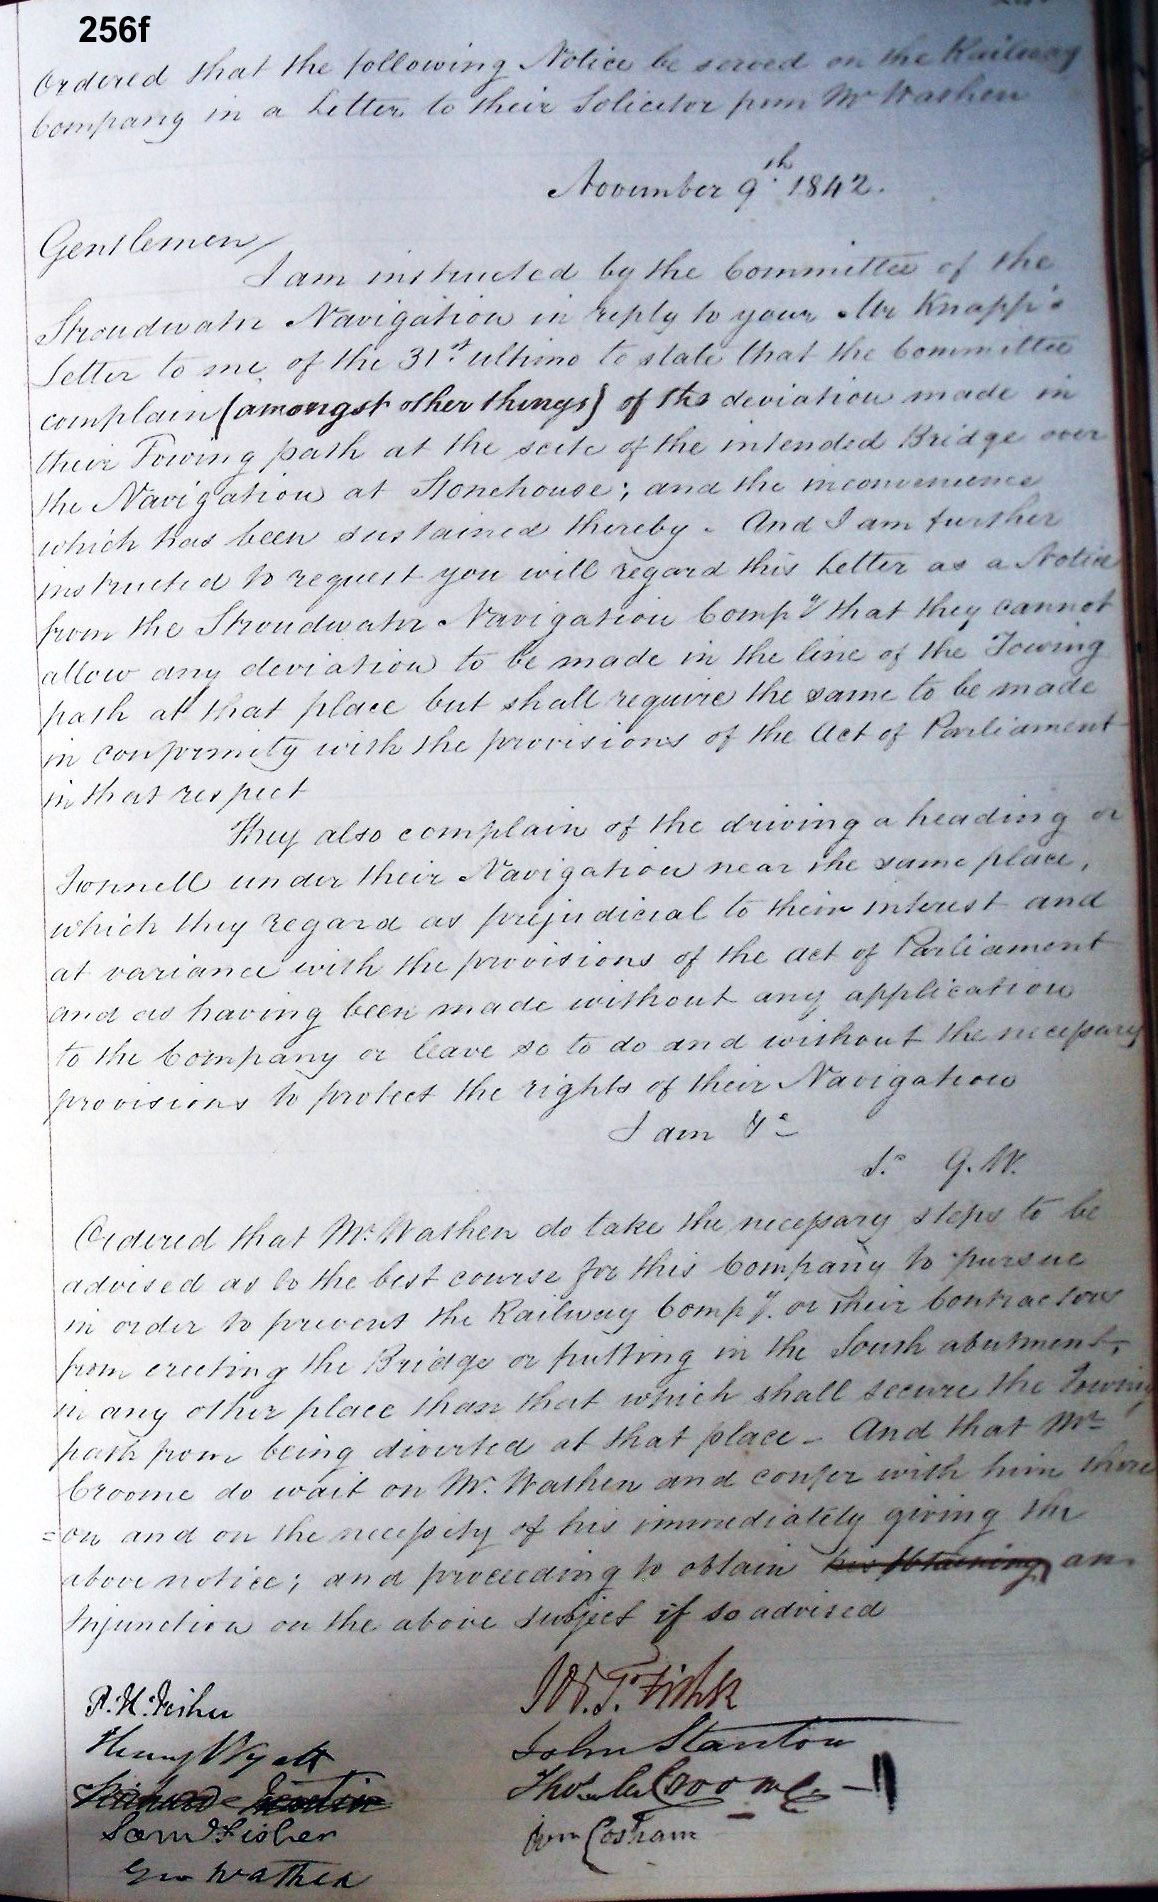 256f
Ordered that the following Notice be served on the Railway
Company in a Letter to their Solicitor from Mr Wathen
November 9.th 1842.
Gentlemen/
I am instructed by the Committee of the
Stroudwater Navigation in reply to your Mr Knapp's
Letter to me of the 31st ultimo to state that the Committee
complain (amongst other things) of the deviation made in
their Towing path at the scite of the intended Bridge over
the Navigation at Stonehouse; and the inconvenience
which has been sustained thereby. And I am further
instructed to request you will regard this Letter as a Notice
from the Stroudwater Navigation Compy that they cannot
allow any deviation to be made in the line of the Towing
path at that place but shall require the same to be made
in conformity with the provisions of the Act of Parliament
in that respect
They also complain of the driving a heading or
Tonnell under their Navigation near the same place,
which they regard as prejudicial to their interest and
at variance with the provisions of the Act of Parliament
and as having been made without any application
to the Company or leave so to do and without the necessary
provisions to protect the rights of their Navigation
I am &c
G. W.
Ordered that Mr. Wathen do take the necessary steps to be
advised as to the best course for this Company to pursue
in order to prevent the Railway Compy. or their Contractors
from erecting the Bridge or putting in the South abutment,
in any other place than that which shall secure the Towing
path from being diverted at that place – And that Mr
Croome do wait on Mr. Wathen and confer with him there
=on and on the necessity of his immediately giving the
above notice; and proceeding to obtain his obtaining an
Injunction on the above subject if so advised
P. H. Fisher
W. T.
Henry Wyatt
John Stanton
Thos. Croome
Saml Fisher
Wm Cosham
Geo Wathen